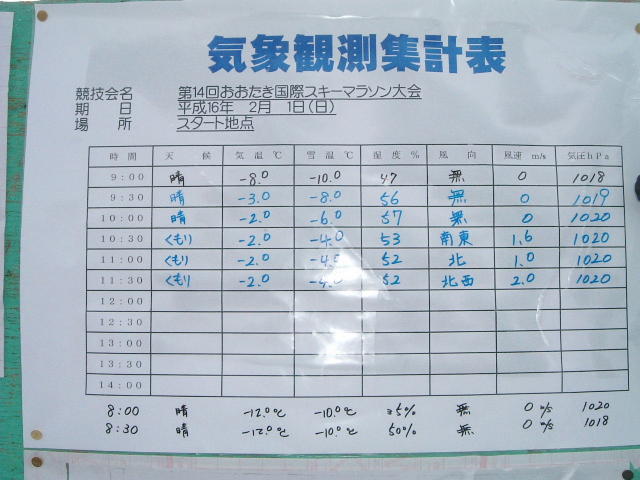 気象観測集計表
競技会名 第14回おおたき国際スキーマラソン大会
期 日 平成16年 2月 1日(日)
場 所 スタート地点
時間 天候 気温℃ 雪温℃ 湿度% 風向 風速 m/s 気圧hPa
9:00 晴 -8.0 -10.0 47 無 0 1018
9:30 晴 -3.0 -8.0 56 無 0 1019
10:00 晴 -2.0 -6.0 57 無 0 1020
10:30 くもり -2.0 -4.0 53 南東 1.6 1020
11:00 くもり -2.0 -4.0 52 北 1.0 1020
11:30 くもり -2.0 -4.0 52 北西 2.0 1020
12:00
12:30
13:00
13:30
14:00
8:00 晴 -12.0℃ -10.0℃ 無 0 m/s 1020
8:30 晴 -12.0℃ -10.0℃ 50% 無 0 m/s 1018